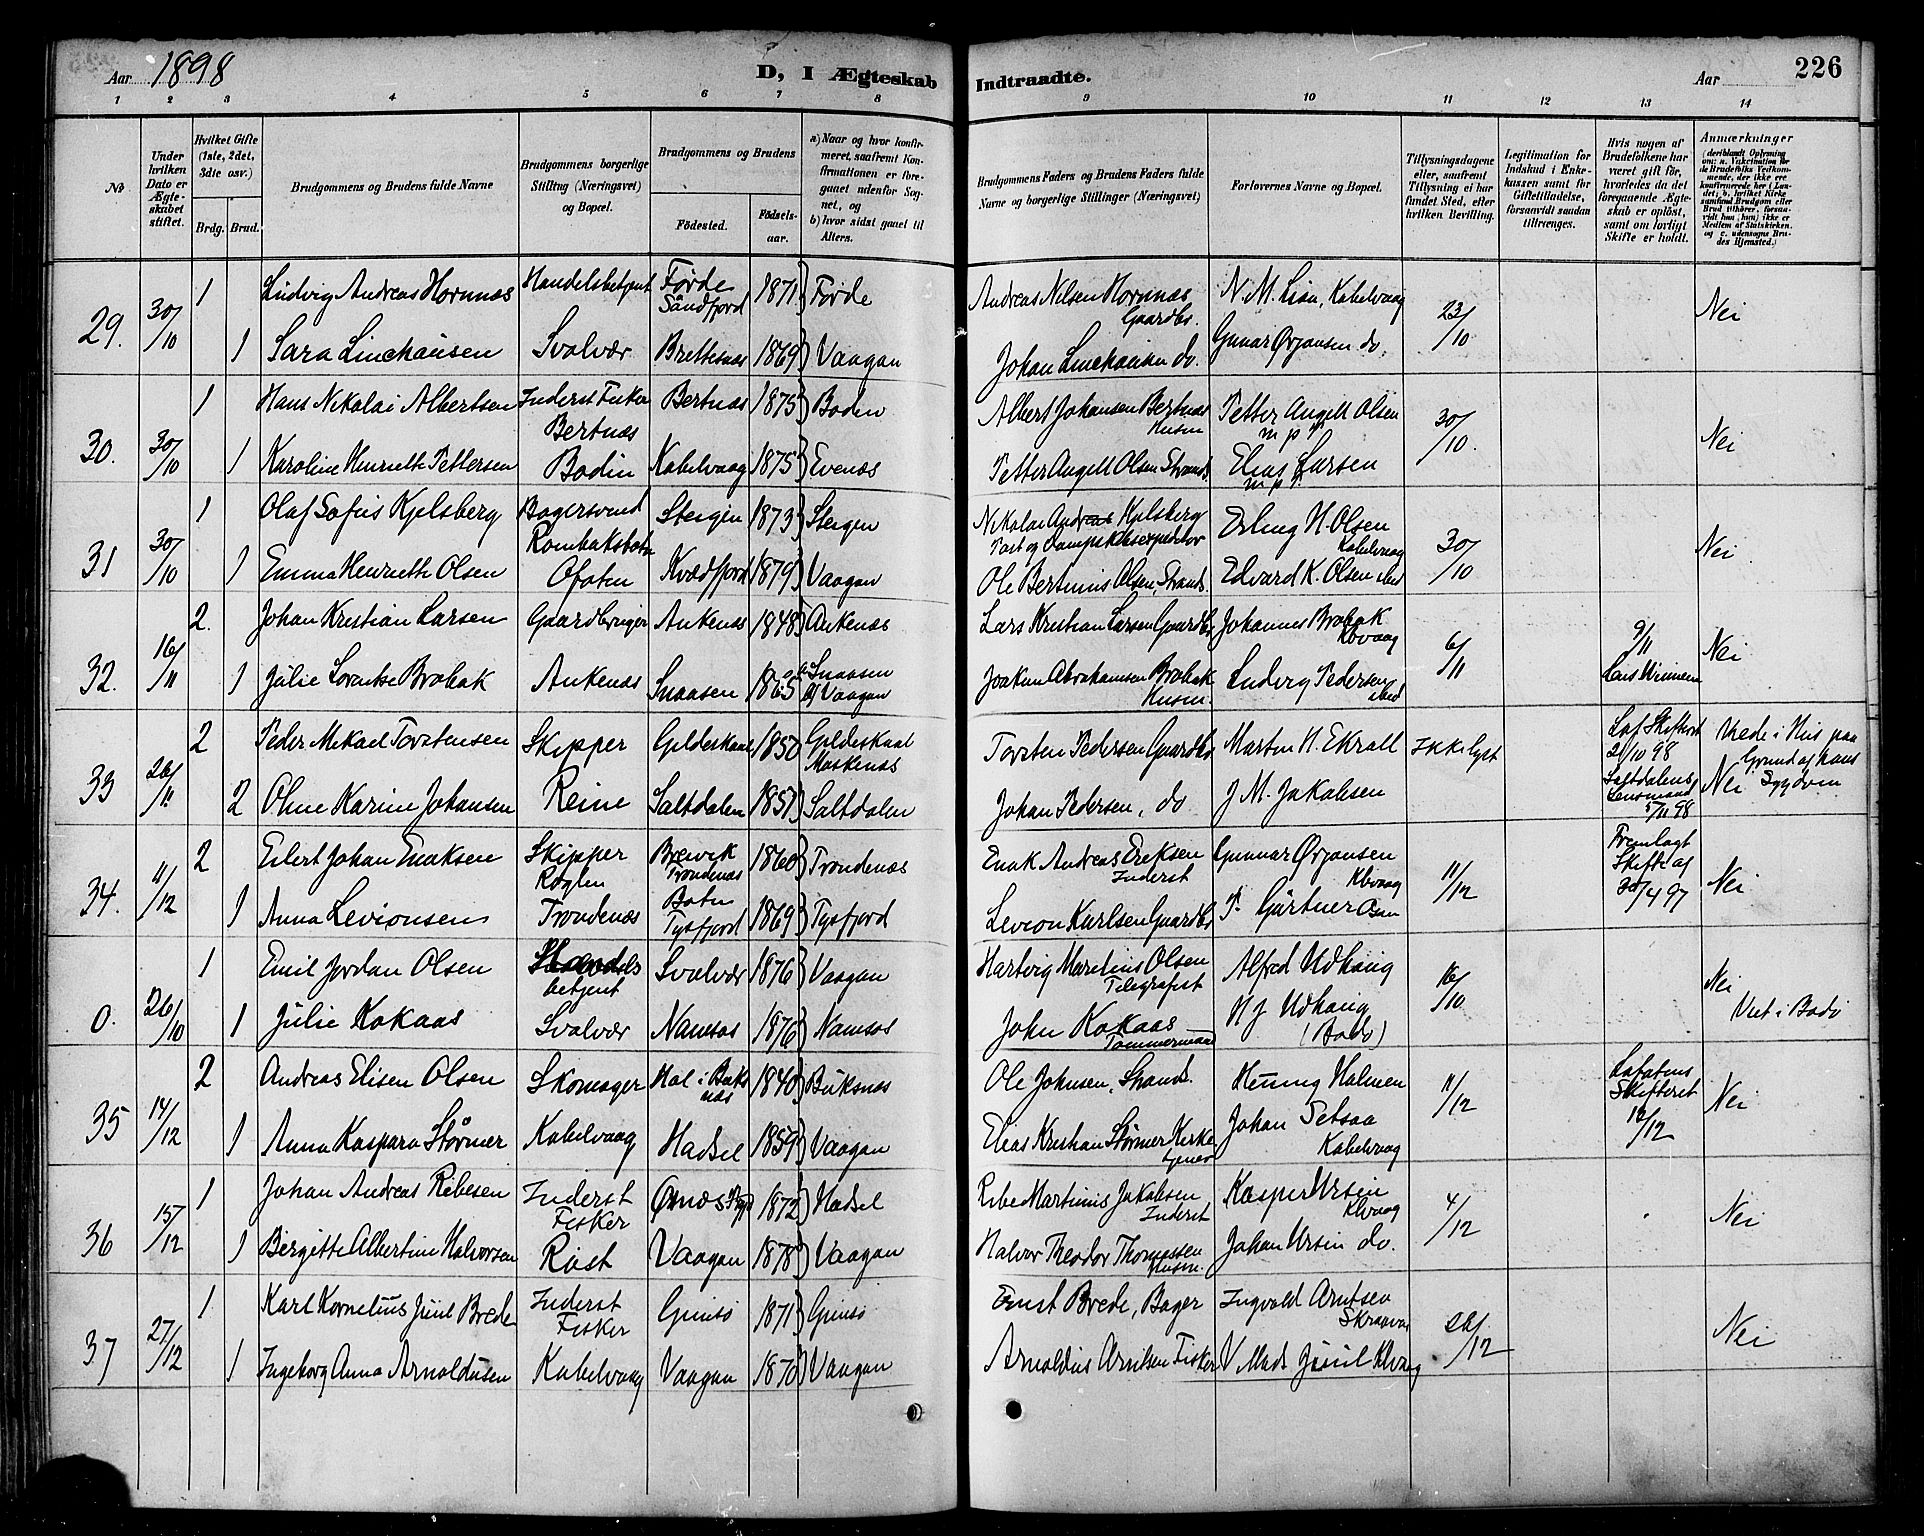 Aar 1898
D, I Ægteskab
Indtraadte.
Aar
226
1 2 3 4 5 6 7 8 9 10 11 12 13 14
No
Under hvilken Dato er Ægteskabet stiftet.
Hvilket Gifte (1ste, 2det, 3die osv.)
Brdg. Brud.
Brudgommens og Brudens fulde Navne
Brudgommens borgerlige Stilling (Næringsvei) og Bopæl.
Brudgommens og Brudens
Fødested.
Fødselsaar.
a) Naar og hvor konfirmeret, saafremt Konfirmationen er foregaaet udenfor Sognet, og
b) hvor sidst gaaet til Alters.
Brudgommens Faders og Brudens Faders fulde Navne og borgerlige Stillinger (Næringsvei)
Forlovernes Navne og Bopæl.
Tillysningsdagene eller, saafremt Tillysning ei har fundet Sted, efter hvilken Bevilling.
Legitimation for Indskud i Enkekassen samt for Giftetilladelse, forsaavidt saadan tiltrænges.
Hvis nogen af Brudefolkene har været gift før, hvorledes da det foregaaende Ægteskab er opløst, samt om lovligt Skifte er holdt.
Anmærkninger
(deriblandt Oplysning om: a. Vakcination for de Brudefolks Vedkommende, der ikke ere konfirmerede her i Landet; b. hvilket Kirkesamfund Brudgom eller Brud tilhører, forsaavidt han (hun) ikke er Medlem af Statskirken, og c. udensogns Brudes Hjemsted.)
29. 30/10 1 Ludvig Andreas Hornnæs Handelsbetjent Førde Søndfjord 1871 Førde Andreas Nilsen Hornnæs Gaardbr. N. M. Lian, Kabelvaag 23/10 Nei
1 Sara Linchausen Svolvær Brettesnæs 1869 Vaagan Johan Linchausen do. Gunar Ørjansen do.
30. 30/10 1 Hans Nikolai Albertsen Inderst Fisker Bertnæs 1875 Bodin Albert Johansen Bertnæs Husm Petter Angell Olsen m p P. 30/10. Nei
1 Karoline Henriette Pettersen Bertnæs Bodin Kabelvaag 1875 Evenæs Petter Angell Olsen Strands. Elias Larsen m p P.
31 30/10 1 Olaf Sofus Kjelsberg Bagersvend Steigen 1873 Steigen Nikolai Andreas Kjelsberg Post og Dampskibsexpeditør Erling H. Olsen Kabelvaag 30/10 Nei
1 Emma Henriette Olsen Rombaksbotn Ofoten Kvædfjord 1879 Vaagan Ole Bertinius Olsen, Strands. Edvard K. Olsen ibid
32. 16/11 2. Johan Kristian Larsen Gaardbruger Ankenæs 1848 Ankenæs Lars Kristian Larsen Gaardbr. Johannes Brobak Kbvaag 6/11 9/11 Nei
1 Julie Lorentse Brobak Ankenæs Snaasen 1865 a) Snaasen b) Vaagan Joakim Abrahamsen Brobak Husm. Ludvig Pedersen ibid
33 26/11 2 Peder Mikael Torstensen Skipper Gildeskaal 1850 Gildeskaal Moskenæs Torsten Pedersen Gaardbr Marten N. Ekrall Ikke lyst Lof. Skifteret 21/10 98 Viede i Hus paa Grund af hans Sygdom
2 Oline Karine Johansen Reine Saltdalen 1851 Saltdalen Johan Pedersen, do J. M. Jakobsen Saltdalens Lensmand 5/11 98 Nei
34. 11/12 2 Eilert Johan Enoksen Skipper Brevik Trondenæs 1860 Trondenæs Enok Andreas Eriksen Inderst Gunnar Ørjansen Kbvaag 11/12 Fremlagt Skifte af 30/4 97 Nei
1 Anna Levionsen Roglen Trondenæs Botn Tysfjord 1869 Tysfjord Levion Karlsen Gaardbr P. Gärtner
0. 26/10 1 Emil Jordan Olsen Handelsbetjent Svolvær 1876 Vaagan Hartvig Martinus Olsen Telegrafist Alfred Udhaug 16/10 Nei
1 Julie Kokaas Svolvær Namsos 1876 Namsos John Kokaas Tømmermand H J Udhaug (Bodø) Viet i Bodø
35 14/12 2 Andreas Elisen Olsen Skomager Hol i Buksnæs 1840 Buksnæs Ole Johnsen, Strands. Henning Holmen 11/12 Lofotens Skifteret 12/12 Nei
1 Anna Kaspara Størmer Kabelvaag Hadsel 1859 Vaagan Elias Kristian Størmer Kirketjener Johan Setsaa Kabelvaag
36 15/12 1 Johan Andreas Ribesen Inderst Fisker Ørnæs 1872 Hadsel Ribe Martinius Jakobsen Inderst Kasper Ursin Kbvaag 4/12 Nei
1 Bergitte Albertine Halvorsen Røst Vaagan 1878 Vaagan Halvor Theodor Thomassen Husm. Johan Ursin do.
37 27/12 1 Karl Kornelius Juul Brede Inderst Fisker Gimsø 1871 Gimsø Ernst Brede, Bager Ingvald Arntsen Skraaven 26/12 Nei
1 Ingeborg Anna Arnoldusen Kabelvaag Vaagan 1870 Vaagan Arnoldus Arnilsen Fisker V. Mads Juul Kbvaag